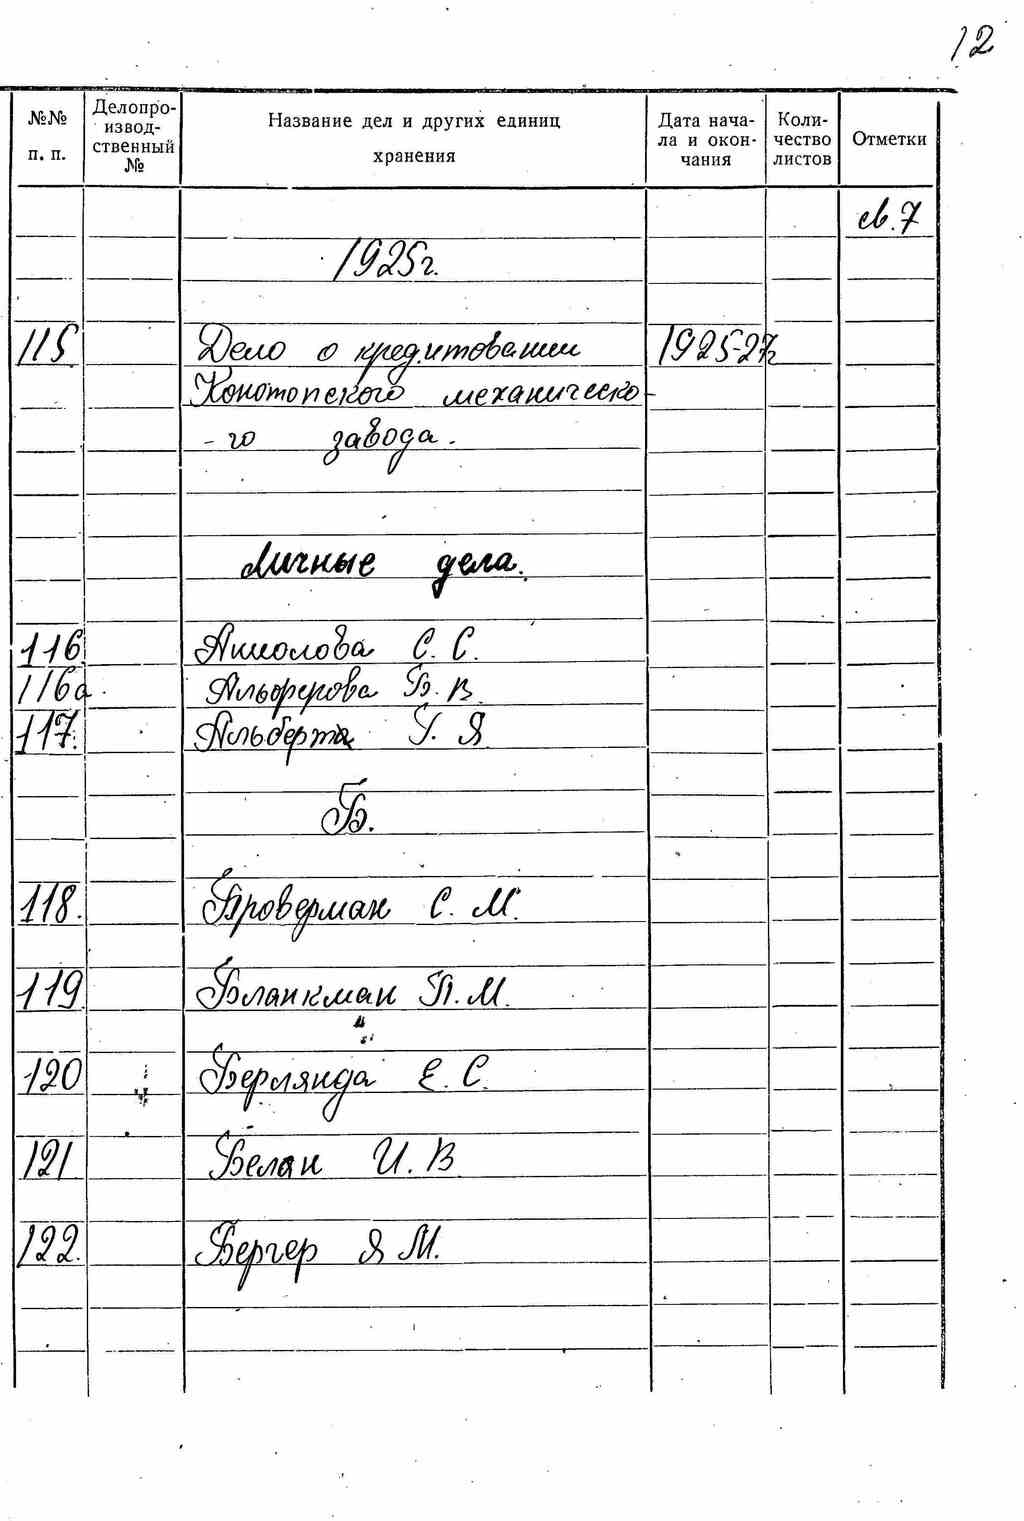 12
№№ п. п.
Делопро-
извод-
ственный
№
Название дел и других единиц
хранения
Дата нача-
ла и окон-
чания
Коли-
чество
листов
Отметки
св. 7
1925г.
115 Дело о кредитовании 1925-27г
Конотопского механическо-
-го завода.
Личные дела.
116. С. С.
116а. Альферова Б. В.
117. Альберта Я
Б.
118. Броверман С. М.
119. Бланкман П. М.
120 Берлянда Е. С.
121 Белан И. В
122. Бергер Я М.